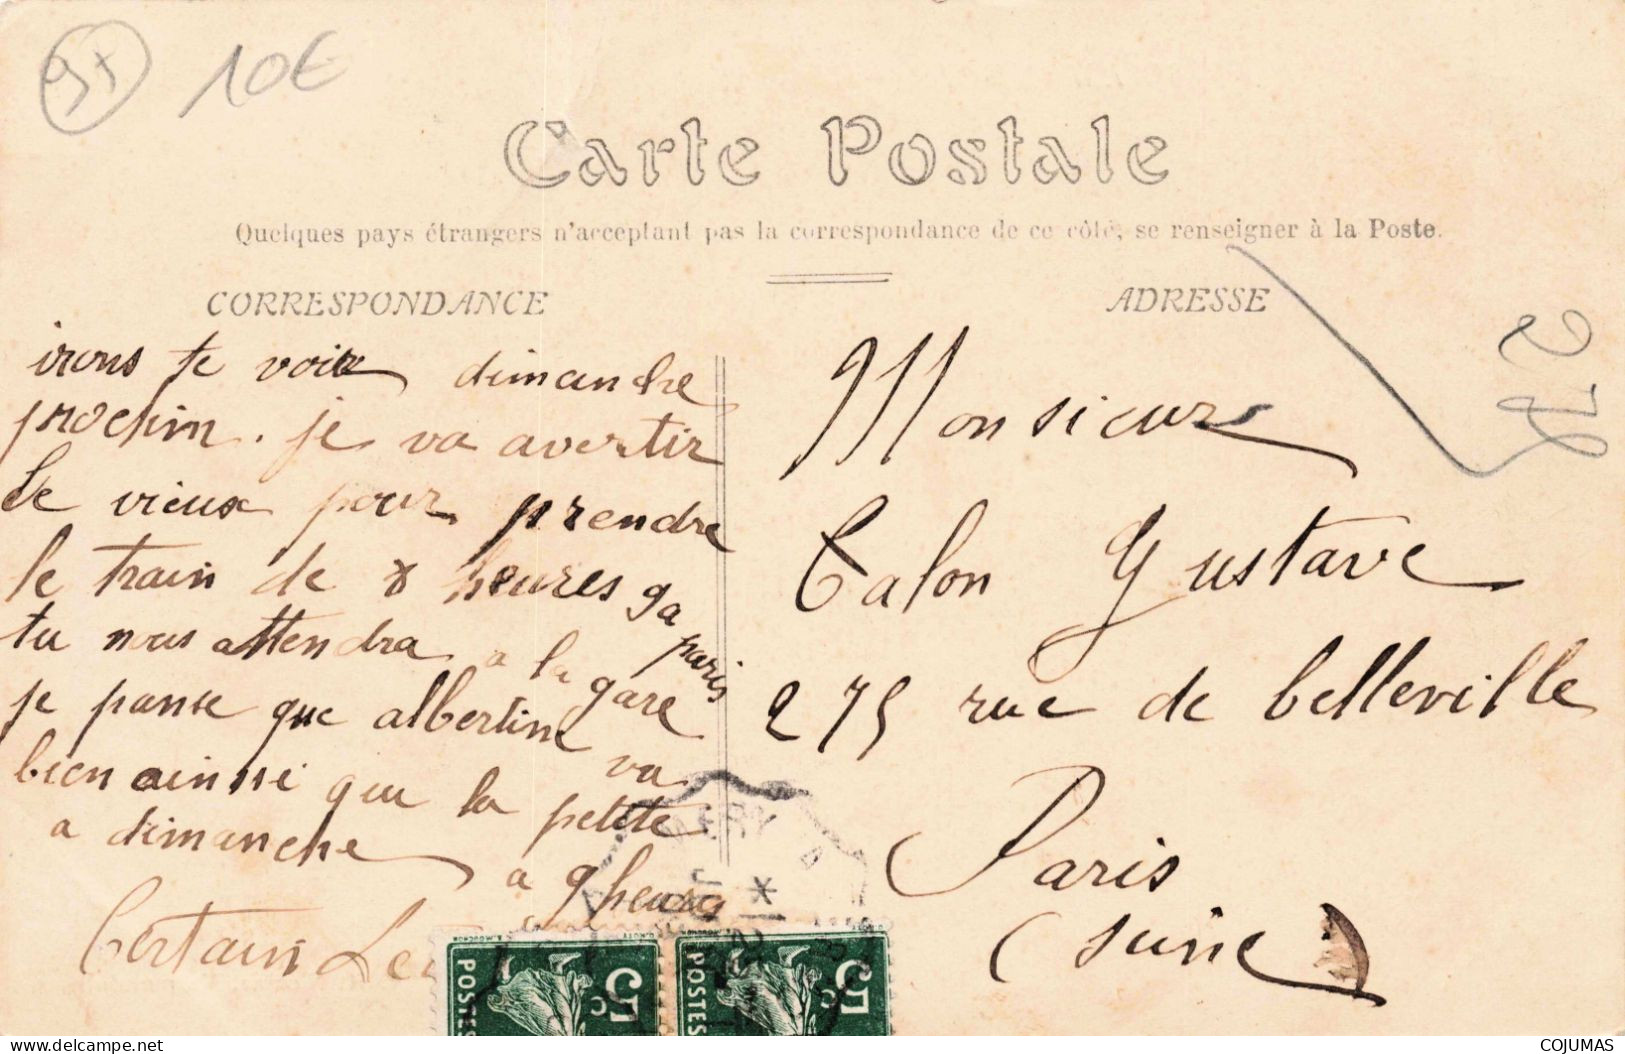 95 10€
Carte Postale
Quelques pays étrangers n'acceptant pas la correspondance de ce côté, se renseigner à la Poste.
CORRESPONDANCE
irons te voir dimanche
prochin. je va avertir
Le vieux pour prendre
le train de 8 heures ga
paris
tu nous attendra a la gare
je panse que albertine va
bien ainssi que la petite
a dimanche a 9 heures
Certain
ADRESSE
Monsieur
Calon Gustave
275 rue de belleville
Paris
(seine)
POSTES 5c
POSTES 5c
COJUMAS